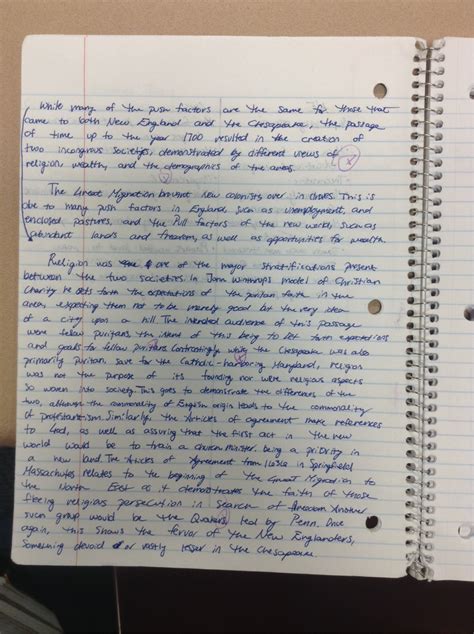 While many of the push factors are the same for those that
came to both New England and the Chesapeake, the passage
of time up to the year 1700 resulted in the creation of
two incongrous societys, demonstrated by different views of
religion, wealth, and the demographics of the areas.
The Great Migration brought new colonists over in droves. This is
due to many push factors in England, such as unemployment, and
enclosed pastures, and the Pull factors of the new world, such as
abundant lands and freedom, as well as opportunities for wealth.
Religion was one of the major stratifications present
between the two societies. In John Winthrops model of Christian
Charity he sets forth the expectations of the puritan faith in the
area, expecting them not to be merely good but the very idea
of a city upon a hill. The intended audience of this passage
were fellow puritans, the of this being to set forth expectations
and goals for fellow puritans. Contrastingly while the Chesapeake was also
primarily puritan, save for the Catholic-harboring Maryland, religion
was not the purpose of its founding nor were religious aspects
so woven into society. This goes to demonstrate the differences of the
two, although the commonality of English origin leads to the commonality
of protestantism. Similarly, the Articles of agreement make references
to God, as well as assuring that the first act in the new
world would be to train a church minister, being a priority in
a new land. The Articles of Agreement from 1636 in Springfield
Massachutes relates to the beginning of the Great Migration to
the North East as it demonstrates the faith of those
fleeing religious persecution in search of freedom. Another
such group would be the Quakers led by Penn. Once
again, this shows the fervor of the New Englanders,
Something devoid or vastly lesser in the Chesapeake.